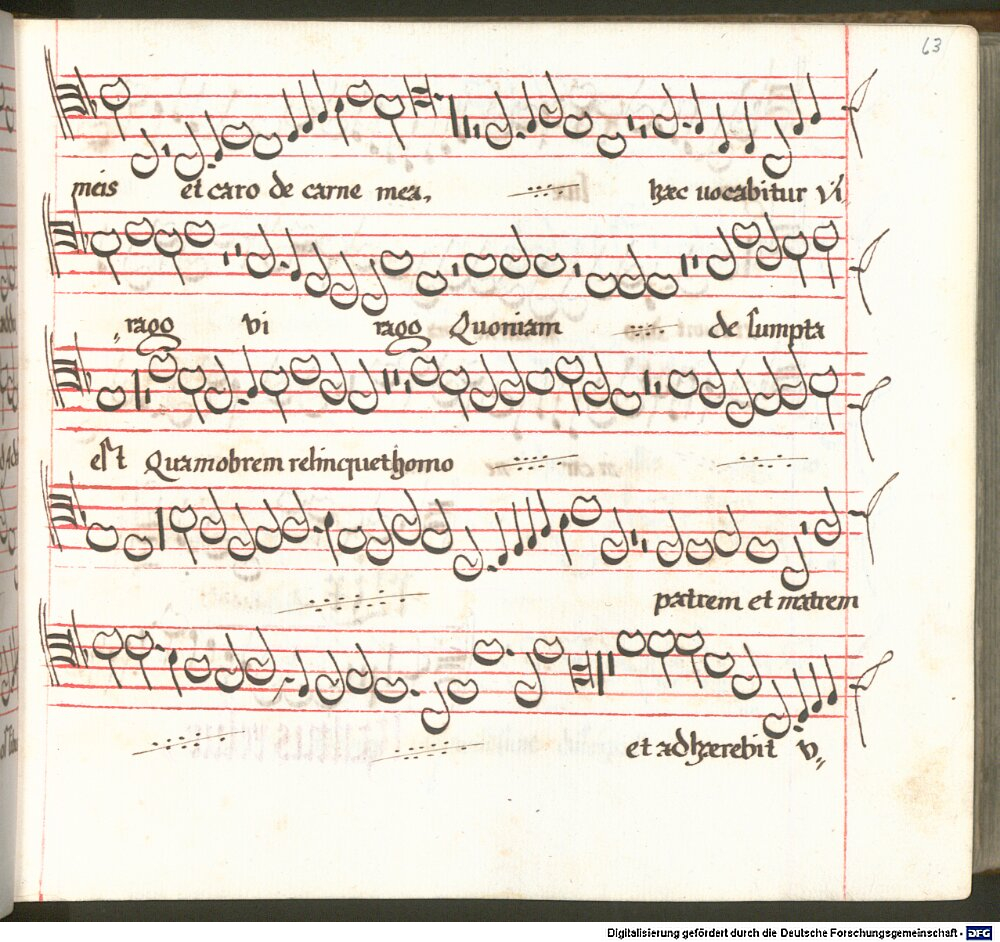 63
meis et caro de carne mea, hæc uocabitur Vi
„rago vi rago Quoniam de sumpta
est Quamobrem relinquet homo
patrem et matrem
et adhærebit v„
Digitalisierung gefördert durch die Deutsche Forschungsgemeinschaft - DFG